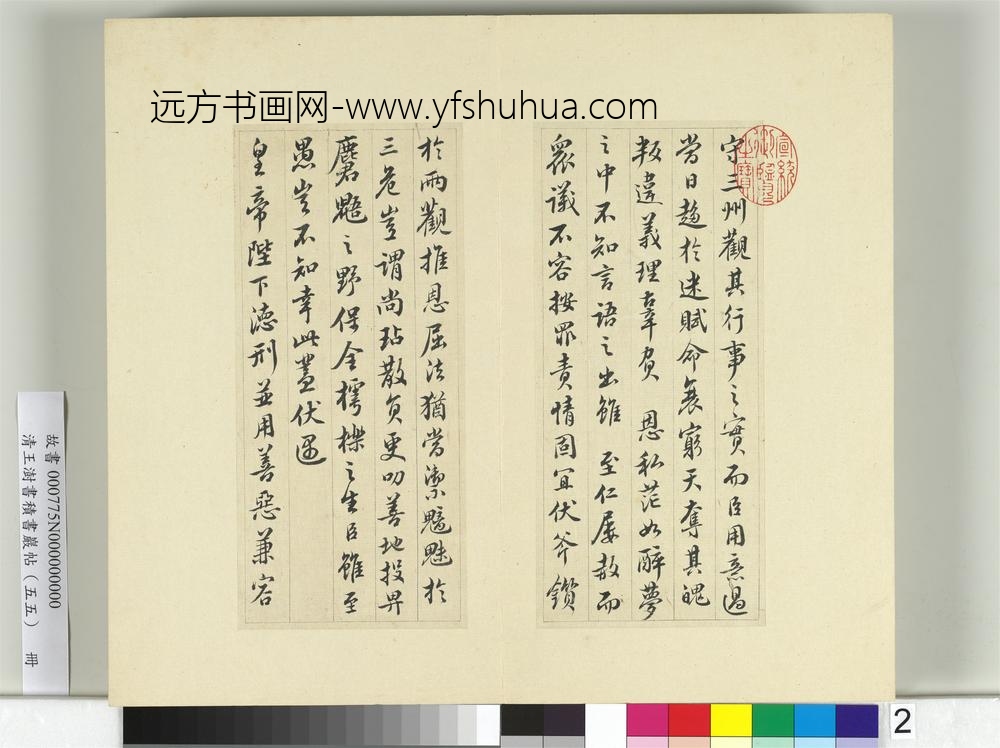 远方书画网-www.yfshuhua.com
宣統御覽之寶
守三州觀其行事之實而臣用意過
當日趨於迷賦命衰窮天奪其魄
叛違義理辜負 恩私茫如醉夢
之中不知言語之出雖 至仁屢赦而
眾議不容按罪責情固宜伏斧鑕
於兩觀推恩屈法猶當禦魑魅於
三危豈謂尚玷散員更叨善地投畀
麏鼯之野保全樗櫟之生臣雖至
愚豈不知幸此蓋伏遇
皇帝陛下德刑並用善惡兼容
故書 000775N000000000
清王澍書積書巖帖(五五) 冊
2